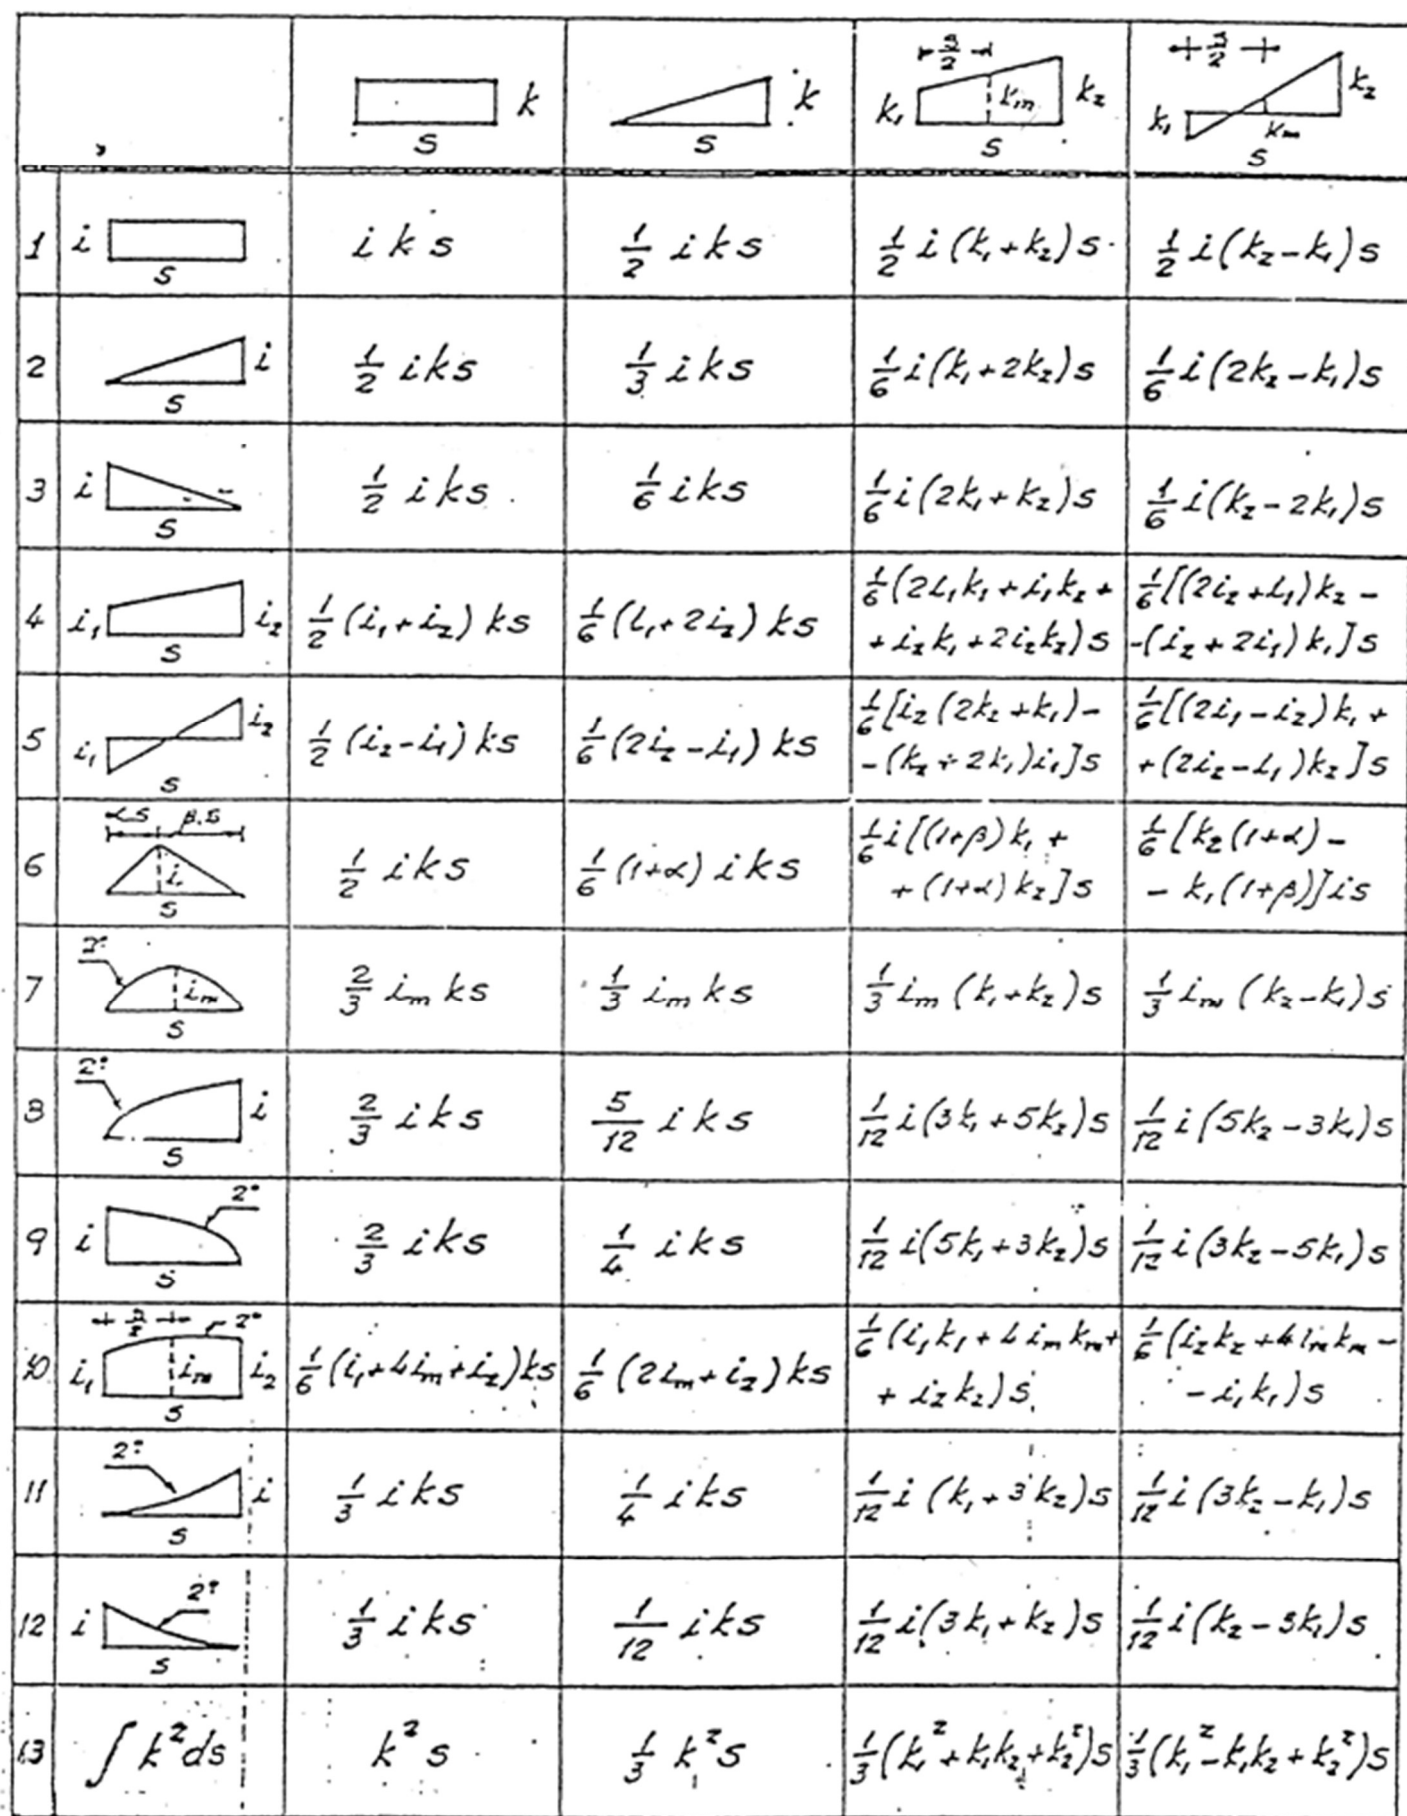 s/2 s/2
k k k₁ kₘ k₂ k₁ kₘ k₂
s s s s
1 i s i k s 1/2 i k s 1/2 i (k₁+k₂) s 1/2 i (k₂-k₁) s
2 i s 1/2 i k s 1/3 i k s 1/6 i (k₁+2k₂) s 1/6 i (2k₂-k₁) s
3 i s 1/2 i k s 1/6 i k s 1/6 i (2k₁+k₂) s 1/6 i (k₂-2k₁) s
4 i₁ i₂ s 1/2 (i₁+i₂) k s 1/6 (i₁+2i₂) k s 1/6 (2i₁k₁+i₁k₂+ 1/6 [(2i₂+i₁)k₂-
+i₂k₁+2i₂k₂) s -(i₂+2i₁)k₁] s
5 i₁ i₂ s 1/2 (i₂-i₁) k s 1/6 (2i₂-i₁) k s 1/6 [i₂(2k₂+k₁)- 1/6 [(2i₁-i₂)k₁+
-(k₂+2k₁)i₁] s +(2i₂-i₁)k₂] s
αs β.s
6 i s 1/2 i k s 1/6 (1+α) i k s 1/6 i [(1+β)k₁+ 1/6 [k₂(1+α)-
+(1+α)k₂] s -k₁(1+β)] i s
2°
7 iₘ s 2/3 iₘ k s 1/3 iₘ k s 1/3 iₘ (k₁+k₂) s 1/3 iₘ (k₂-k₁) s
2°
8 i s 2/3 i k s 5/12 i k s 1/12 i (3k₁+5k₂) s 1/12 i (5k₂-3k₁) s
2°
9 i s 2/3 i k s 1/4 i k s 1/12 i (5k₁+3k₂) s 1/12 i (3k₂-5k₁) s
s/2 2°
10 i₁ iₘ i₂ s 1/6 (i₁+4iₘ+i₂) k s 1/6 (2iₘ+i₂) k s 1/6 (i₁k₁+4iₘkₘ+ 1/6 (i₂k₂+4iₘkₘ-
+i₂k₂) s -i₁k₁) s
2°
11 i s 1/3 i k s 1/4 i k s 1/12 i (k₁+3k₂) s 1/12 i (3k₂-k₁) s
2°
12 i s 1/3 i k s 1/12 i k s 1/12 i (3k₁+k₂) s 1/12 i (k₂-3k₁) s
13 ∫ k² ds k² s 1/3 k² s 1/3 (k₁²+k₁k₂+k₂²) s 1/3 (k₁²-k₁k₂+k₂²) s